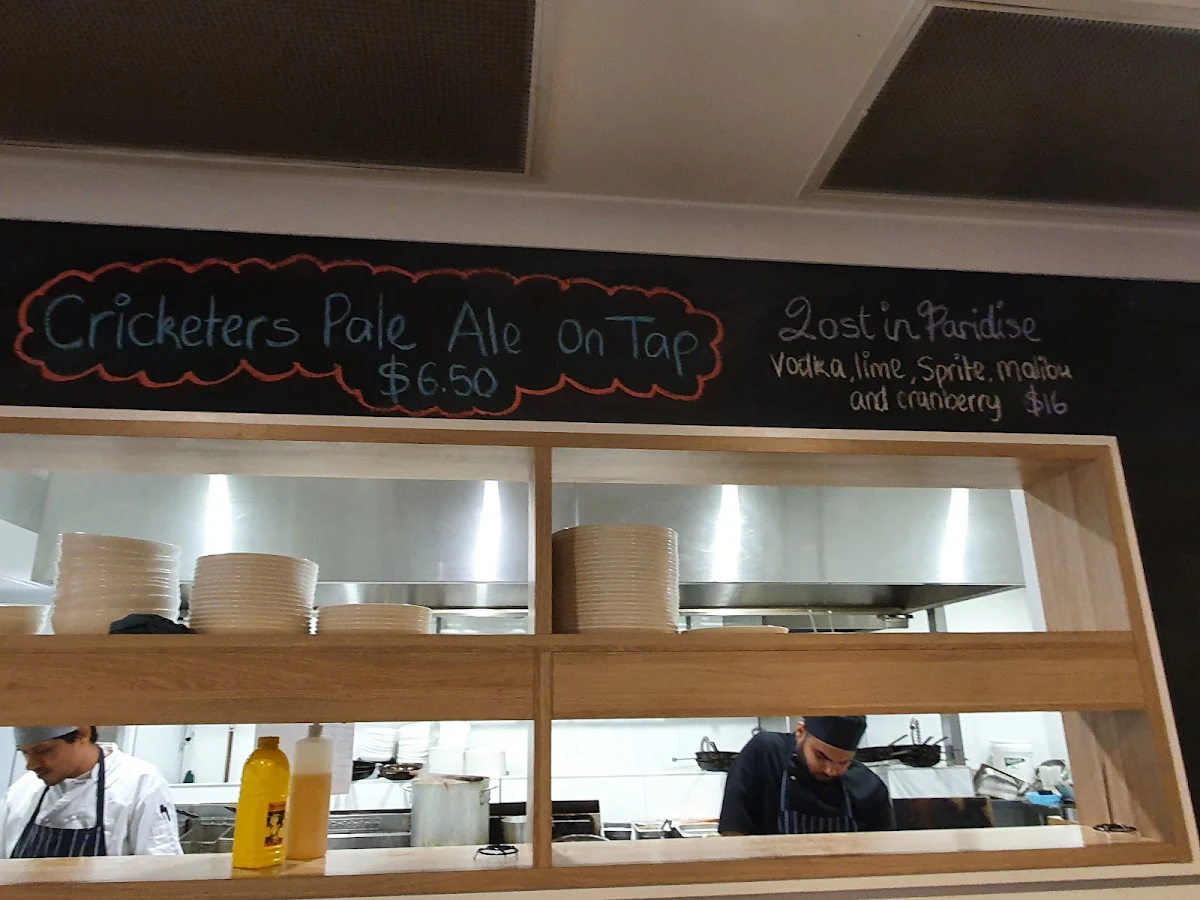 Cricketers Pale Ale on Tap
$6.50
Lost in Paridise
Vodka, lime, Sprite, malibu
and cranberry $16